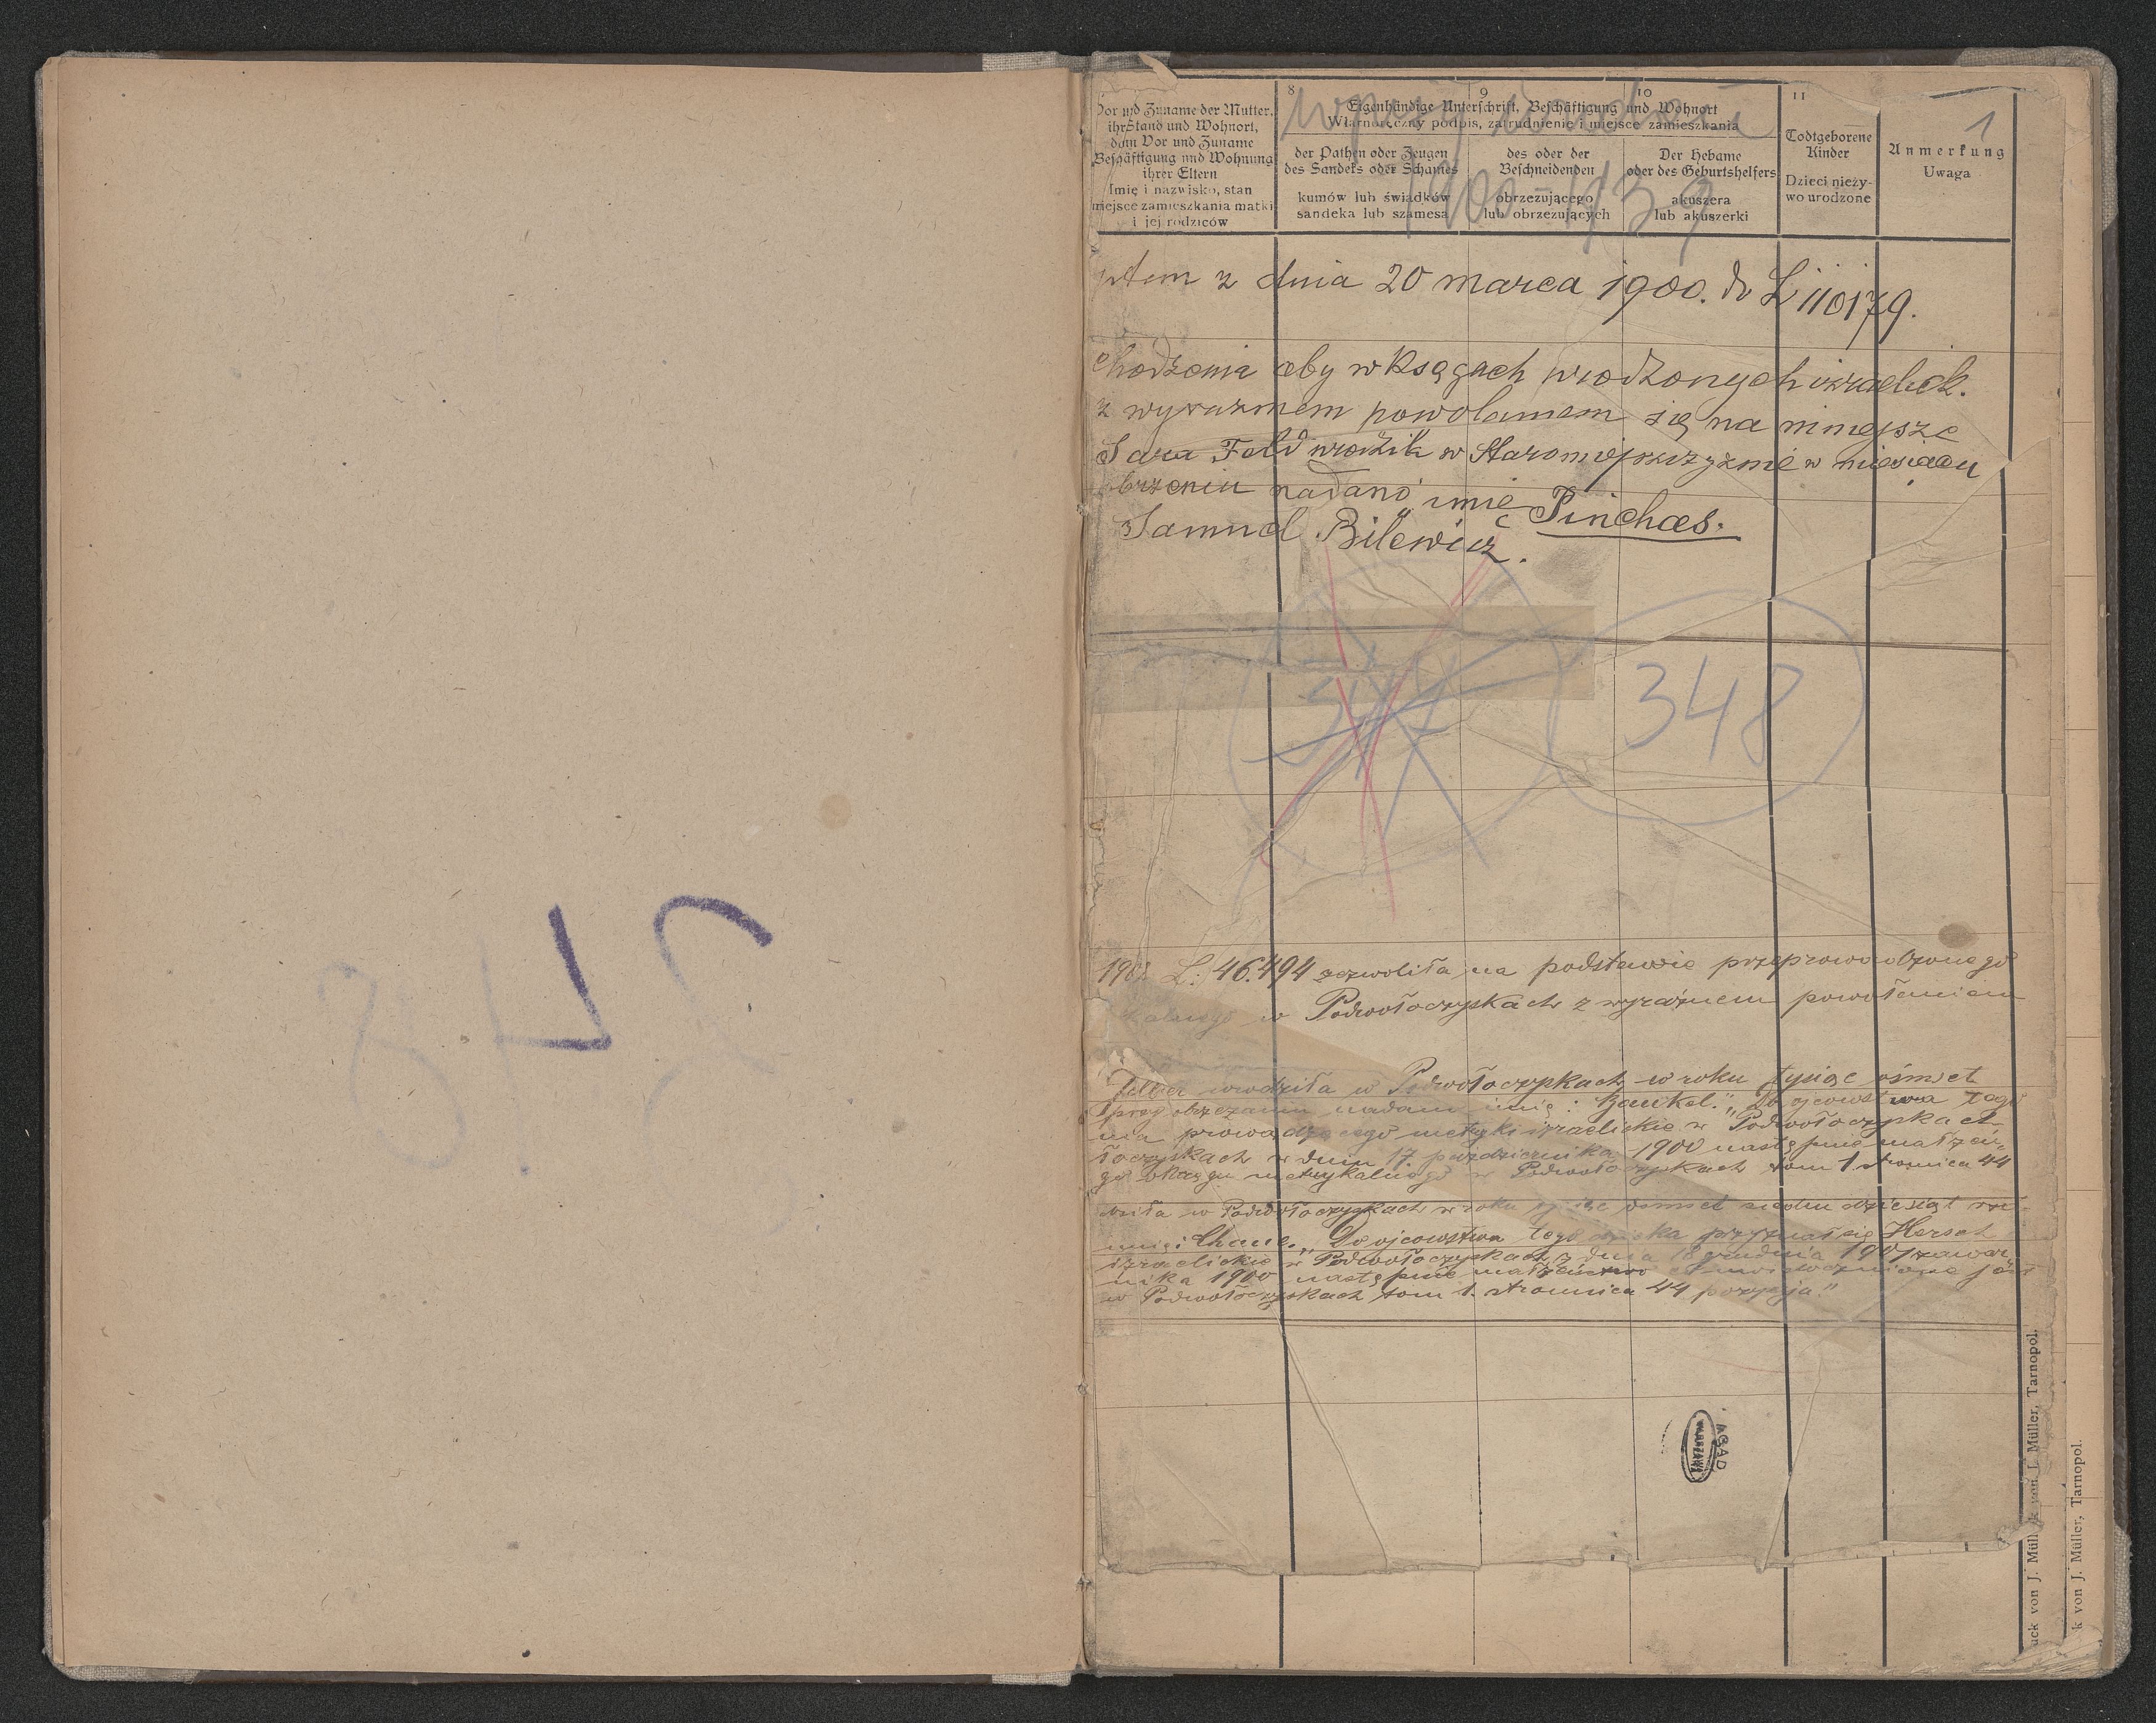 348
Vor und Zuname der Mutter,
ihr Stand und Wohnort,
dann Vor und Zuname
Beschäftigung und Wohnung
ihrer Eltern
Imię i nazwisko, stan
miejsce zamieszkania matki
i jej rodziców
8
9
10
Eigenhändige Unterschrift, Beschäftigung und Wohnort
Własnoręczny podpis, zatrudnienie i miejsce zamieszkania
der Pathen oder Zeugen
des Sandeks oder Schames
kumów lub świadków
sandeka lub szamesa
des oder der
Beschneidenden
obrzezującego
lub obrzezujących
Der Hebame
oder des Geburtshelfers
akuszera
lub akuszerki
11
Todtgeborene
Kinder
Dzieci nieży-
wo urodzone
Anmerkung
Uwaga
1
1900-1939
z dnia 20 marca 1900. do L 110179.
chodzenia aby w Księgach urodzonych izraelick.
z wyraznem powołaniem się na niniejsze
Sara Feld urodziła w Staromiejszczyznie w miesiącu
obrzeniu nadano imię Pinchas.
Samuel Bilewicz.
348
L: 46.494 zezwoliła na podstawie przeprowadzonego
w Podwołoczyskach z wyraźnem powołaniem
urodziła w Podwołoczyskach w roku tysiąc ośmset
przy obrzezaniu nadano imię: Jankel." Do ojcowstwa tego
prowadzącego metryki izraelickie w Podwołoczyskach
łoczyskach w dniu 17 października 1900 następnie małżeń
go okręgu metrykalnego w Podwołoczyskach tom 1 stronica 44
dziła w Podwołoczyskach w roku tysiąc ośmset siedmdziesiąt
imię: Chane." Do ojcowstwa tego dziecka przyznał się Hersch
izraelickie w Podwołoczyskach z dnia 18 grudnia
nika 1900 następnie małżeństwo
w Podwołoczyskach tom 1. stronica 44 pozycja."
AGAD
WARSZAWA
uck von J. Müll
k von J. Müller, Tarnopol.
k von J. Müller, Tarnopol.